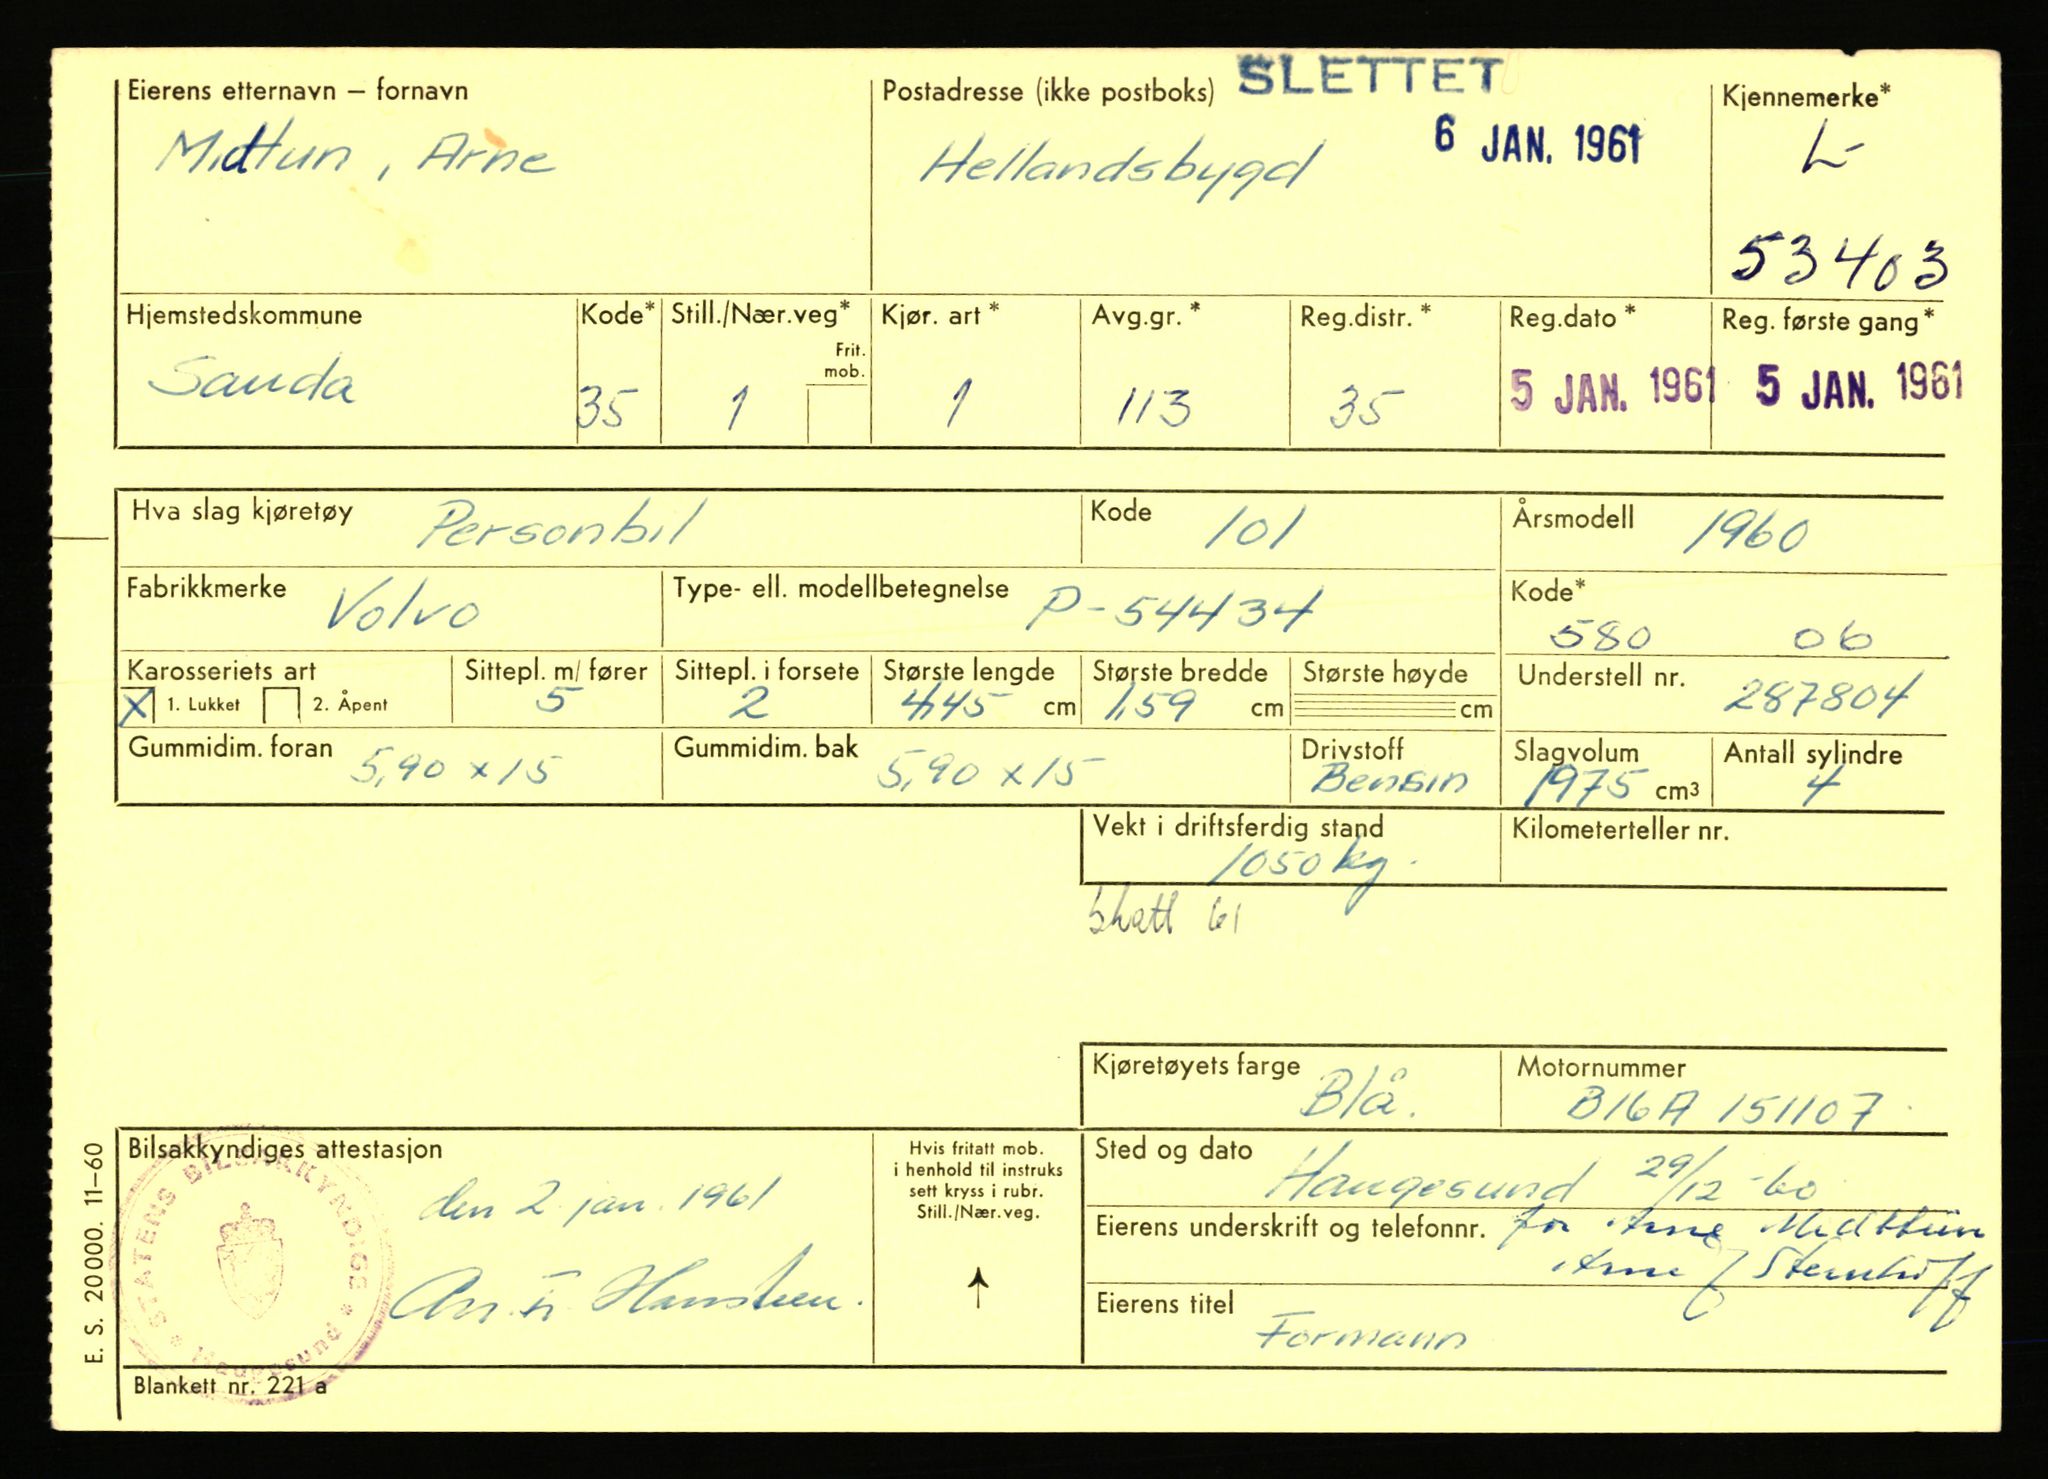 SLETTET
Eierens etternavn – fornavn
Postadresse (ikke postboks)
Kjennemerke*
Midtun, Arne
Hellandsbygd
6 JAN. 1961
L-
53403
Hjemstedskommune
Kode*
Still./Nær.veg*
Kjør. art *
Avg.gr. *
Reg.distr. *
Reg.dato *
Reg. første gang*
Frit. mob.
Sauda
35
1
1
113
35
5 JAN. 1961
5 JAN. 1961
Hva slag kjøretøy Personbil
Kode 101
Årsmodell 1960
Fabrikkmerke Volvo
Type- ell. modellbetegnelse P-54434
Kode*
580 06
Karosseriets art
X 1. Lukket 2. Åpent
Sittepl. m/ fører
5
Sittepl. i forsete
2
Største lengde
4,45 cm
Største bredde
1,59 cm
Største høyde
cm
Understell nr.
287804
Gummidim. foran
5,90 x 15
Gummidim. bak
5,90 x 15
Drivstoff
Bensin
Slagvolum
1975 cm³
Antall sylindre
4
Vekt i driftsferdig stand
1050 kg.
Kilometerteller nr.
skatt 61
Kjøretøyets farge
Blå.
Motornummer
B16A 151107
Bilsakkyndiges attestasjon
den 2 jan. 1961
Hansteen.
STATENS BILSAKKYNDIGE * Haugesund *
Hvis fritatt mob.
i henhold til instruks
sett kryss i rubr.
Still./Nær.veg.
↑
Sted og dato
Haugesund 29/12-60
Eierens underskrift og telefonnr. for Arne Midttun
Arne
Eierens titel
Formann
E. S. 20000. 11–60
Blankett nr. 221 a